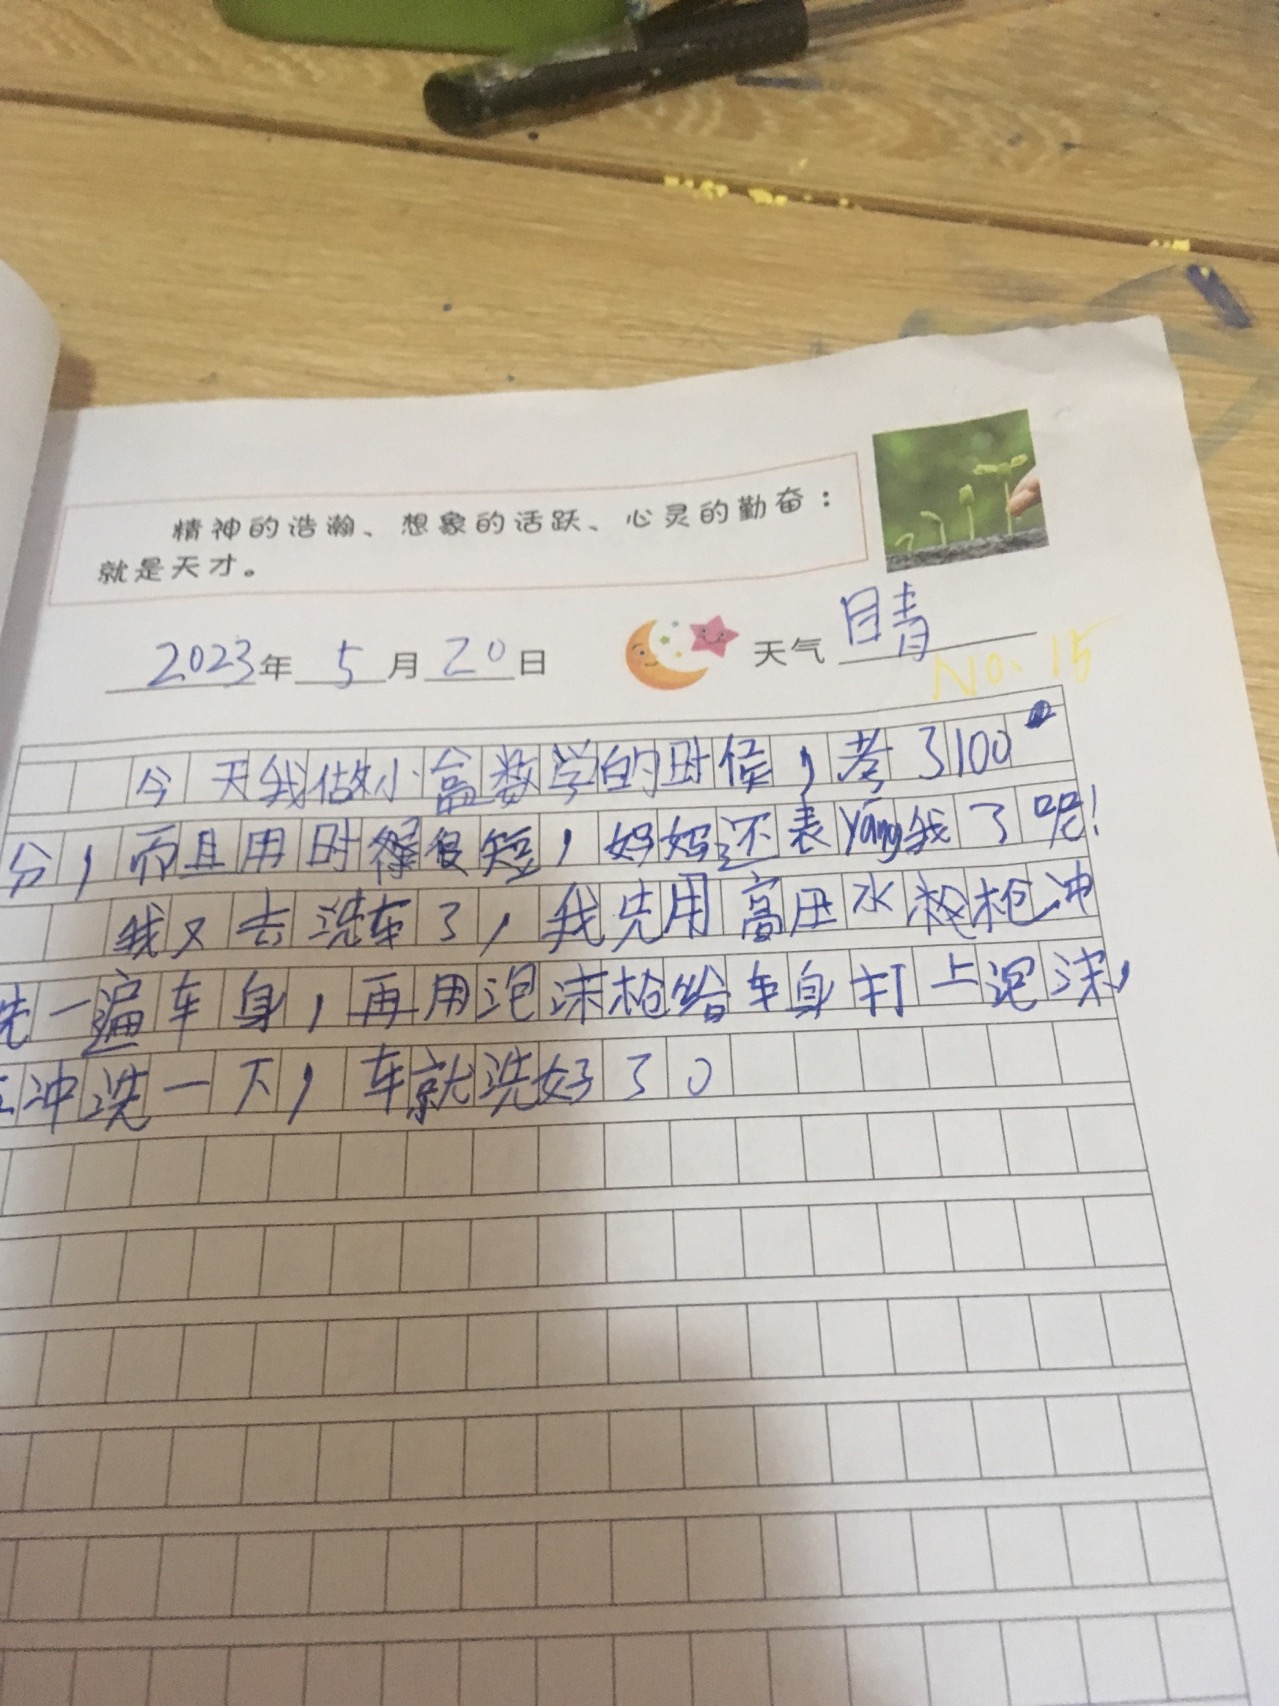 精神的浩瀚、想象的活跃、心灵的勤奋：
就是天才。
2023年 5月20日 天气 晴
No. 15
今天我做小盒数学的时候，考了100
分，而且用时很短，妈妈还表yáng我了呢！
我又去洗车了，我先用高压水枪冲
洗一遍车身，再用泡沫枪给车身打上泡沫，
冲洗一下，车就洗好了。